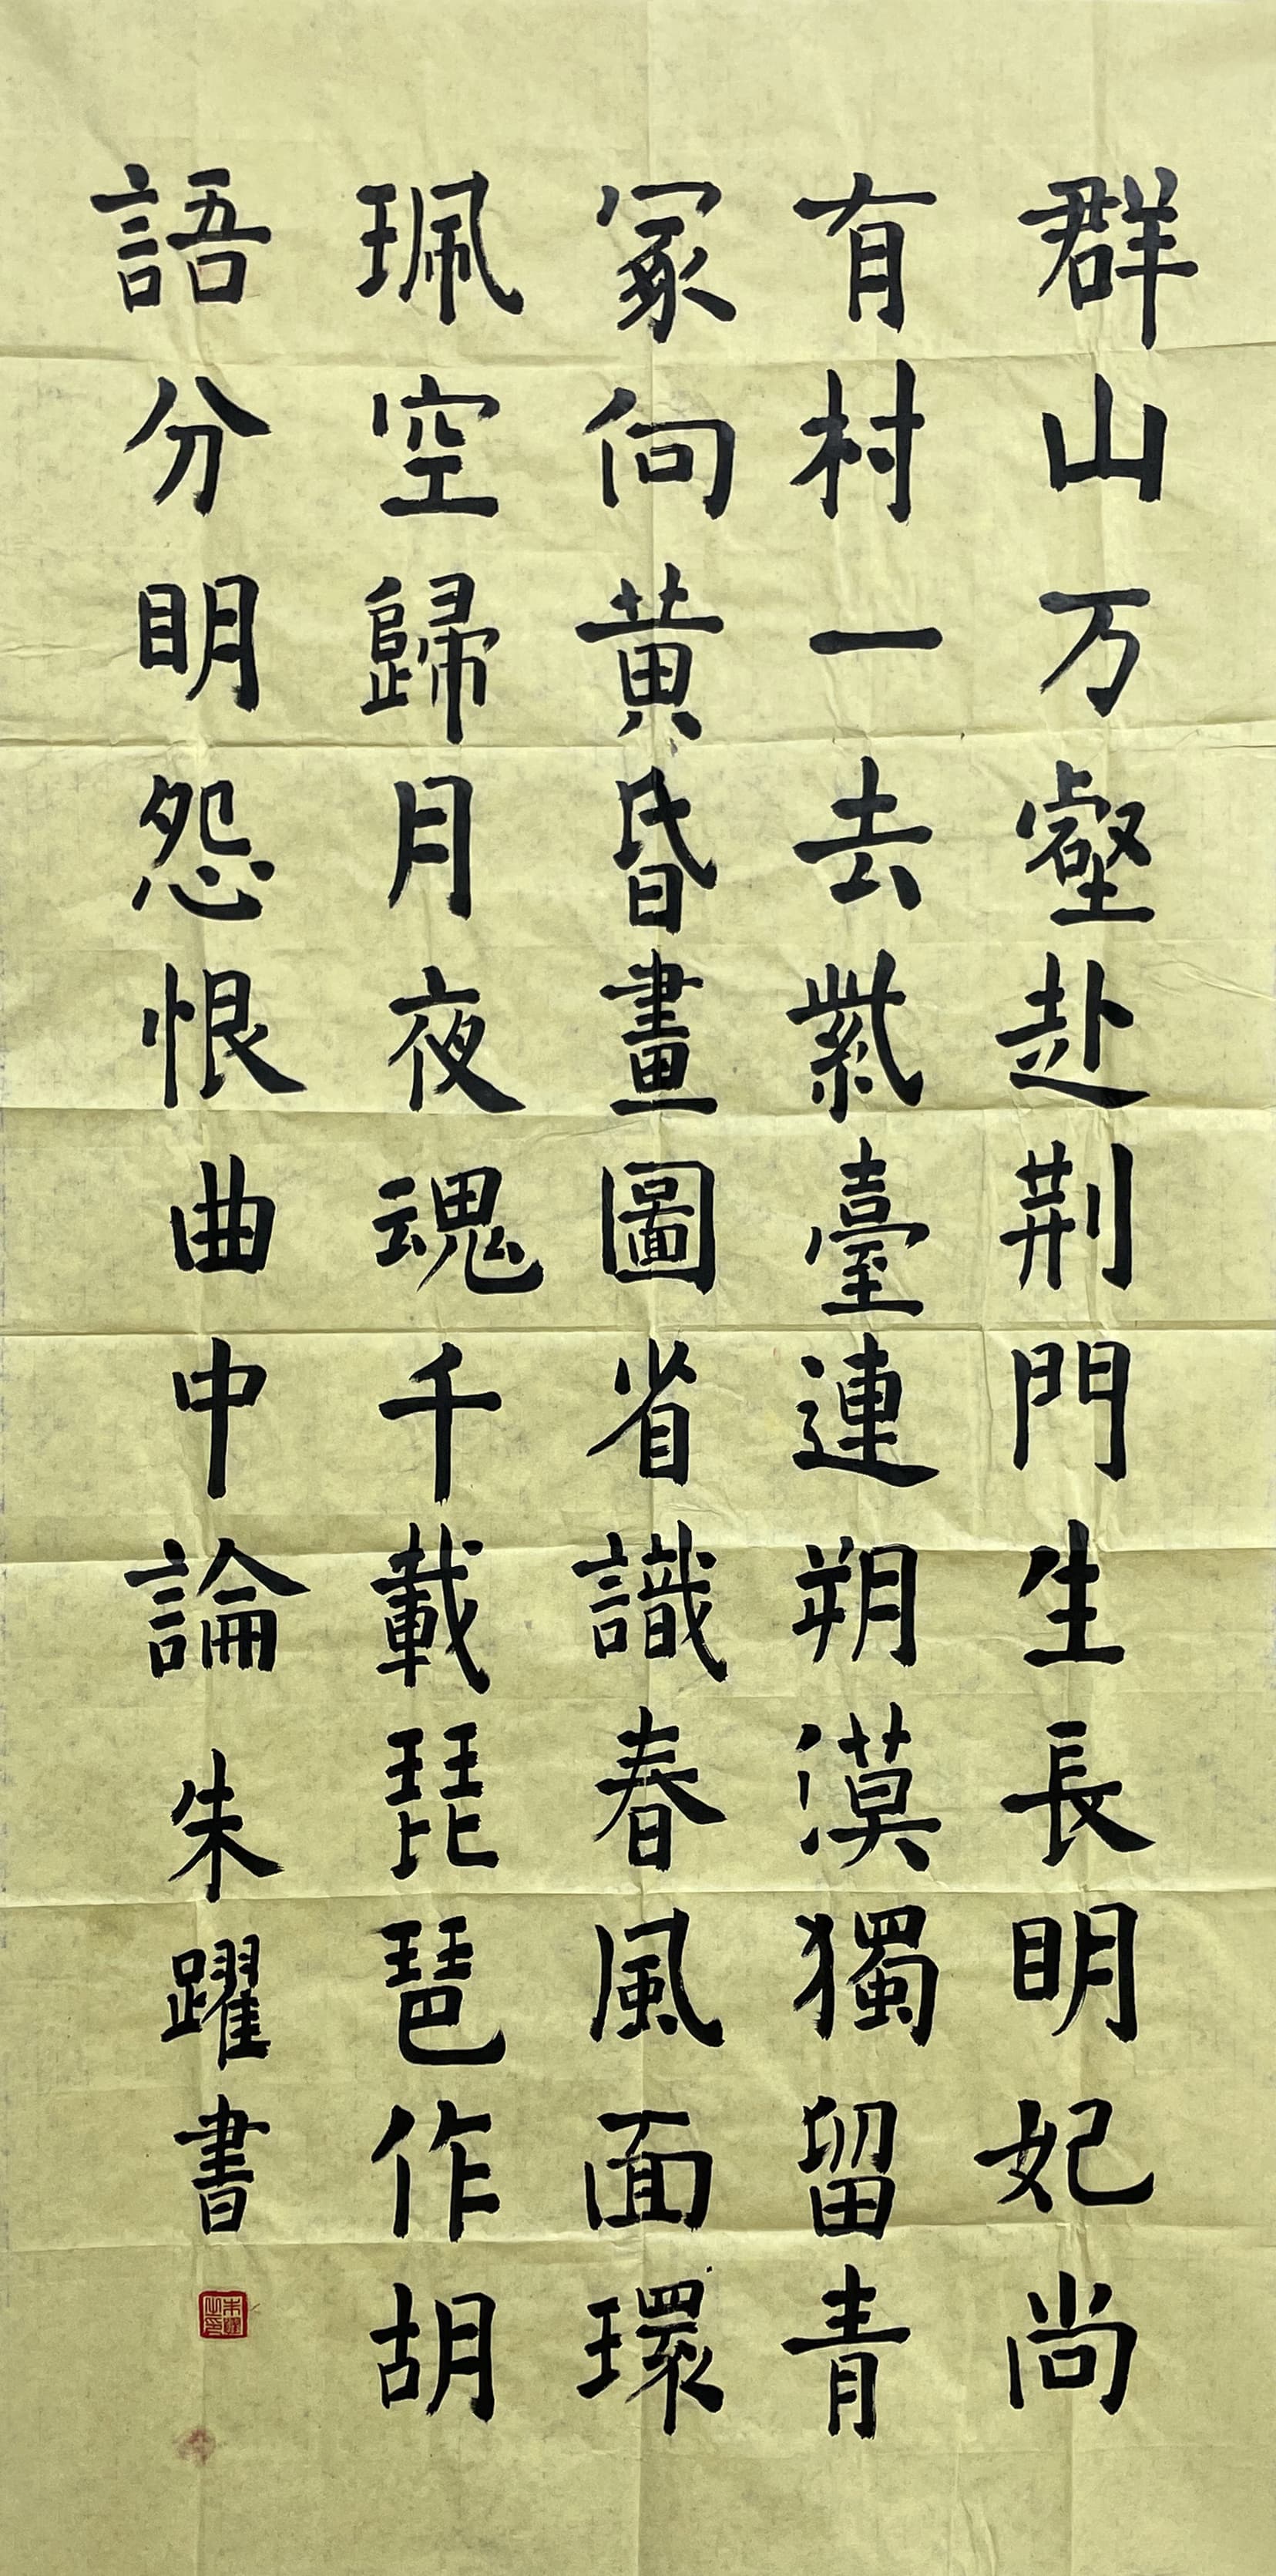 群山万壑赴荆門生長明妃尚
有村一去紫臺連朔漠獨留青
冢向黄昏畫圖省識春風面環
珮空歸月夜魂千載琵琶作胡
語分明怨恨曲中論 朱躍書